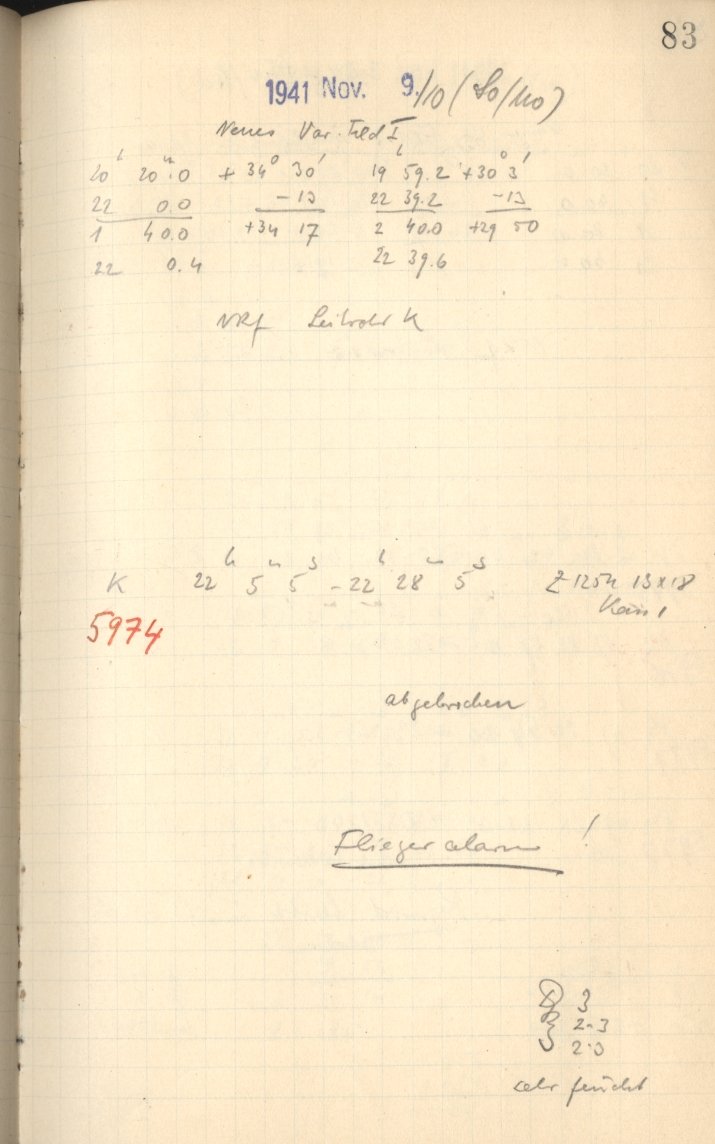 83
1941 Nov. 9./10 (So/Mo)
Neues Var. Feld I
20h 20m.0 +34° 30' 19h 59.2 +30° 3'
22 0.0 -13 22 39.2 -13
1 40.0 +34 17 2 40.0 +29 50
22 0.4 22 39.6
Leitrohr K
K 22h 5m 5s - 22h 28m 5s 13x18
5974
abgebrochen
Fliegeralarm!
3
2-3
sehr feucht